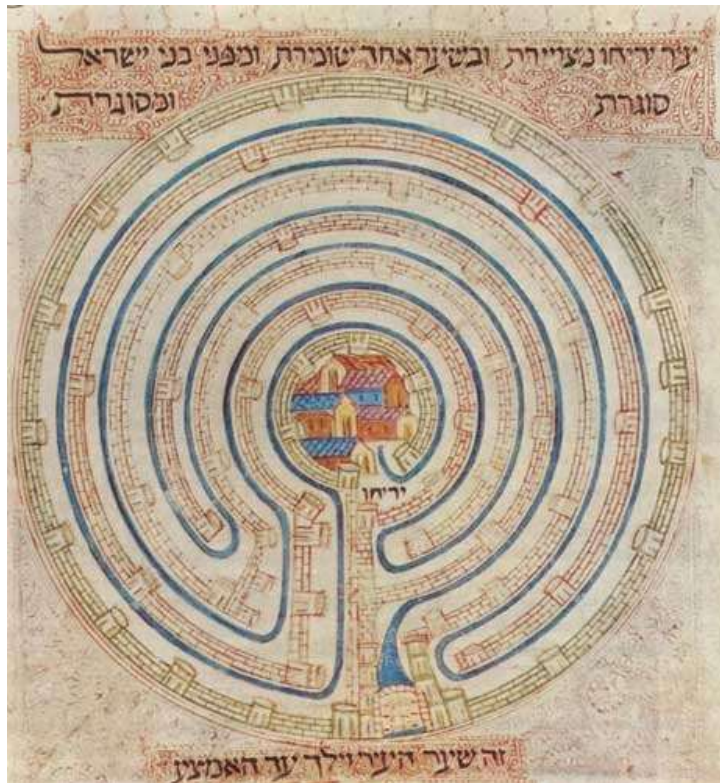 עיר יריחו מצויירת ובשער אחד שומרת ומפני בני ישראל
סוגרת ומסוגרת
יריחו
זה שער העיר וילך עד האמצע